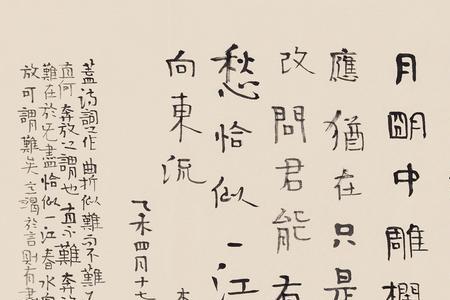 月朙中雕欄
應猶在只是
改問君能有
愁恰似一江
向東流
乙未四月十七
蓋詩詞之作曲折似難而不難
直何奔放之謂也直不難奔放
難在於无盡恰似一江春水
放可謂難矣立竭於言則有